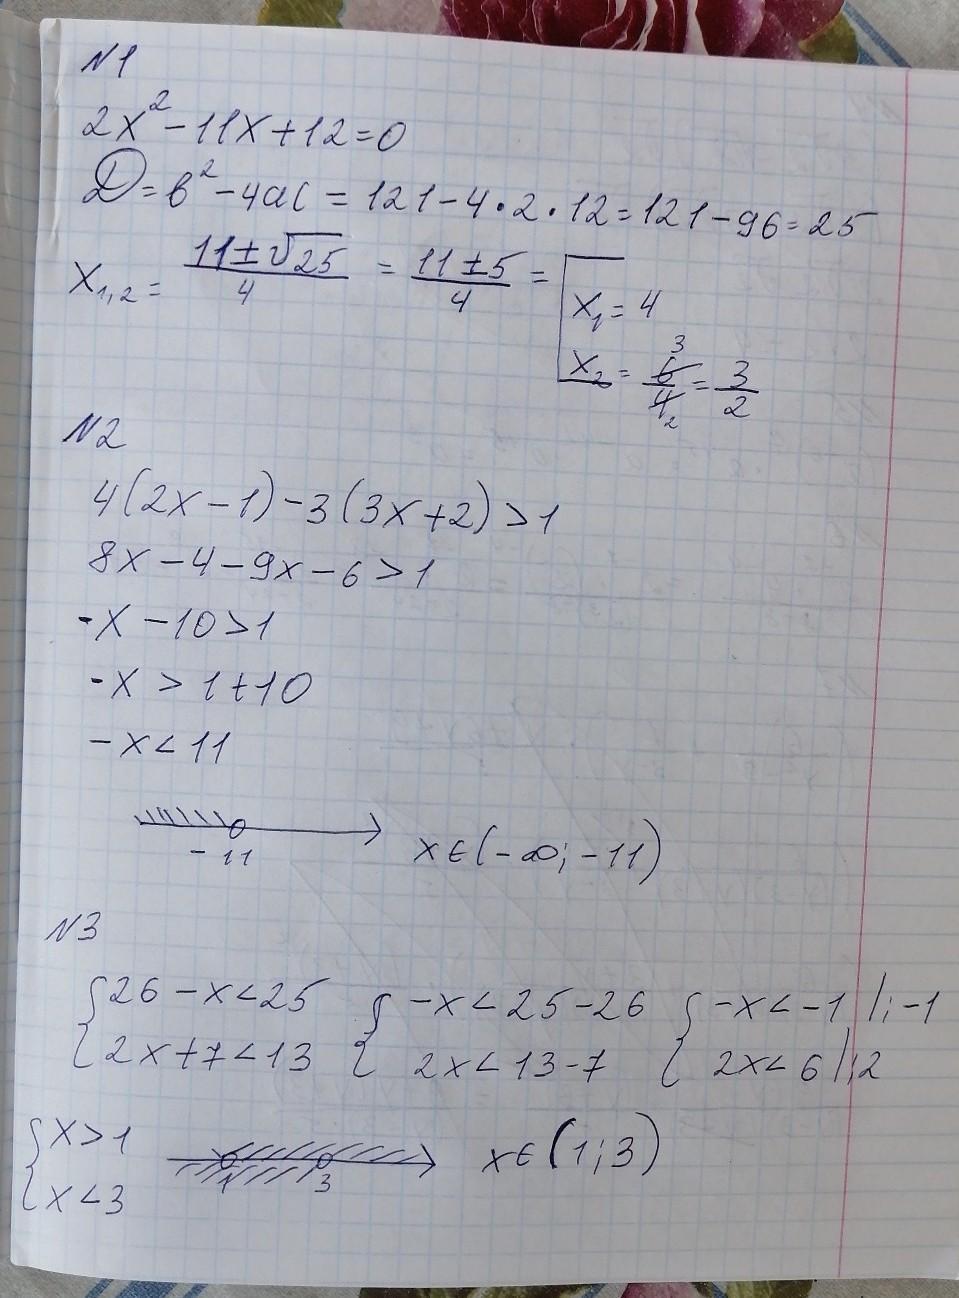 N1
2x² - 11x + 12 = 0
D = b² - 4ac = 121 - 4 · 2 · 12 = 121 - 96 = 25
x₁,₂ = (11 ± √25)/4 = (11 ± 5)/4 = [ x₁ = 4
x₂ = 6/4 = 3/2
3
2
N2
4(2x - 1) - 3(3x + 2) > 1
8x - 4 - 9x - 6 > 1
-x - 10 > 1
-x > 1 + 10
-x < 11
-11 x ∈ (-∞; -11)
N3
{ 26 - x < 25 { -x < 25 - 26 { -x < -1 |: -1
2x + 7 < 13 2x < 13 - 7 2x < 6 |: 2
{ x > 1
1 3 x ∈ (1; 3)
x < 3